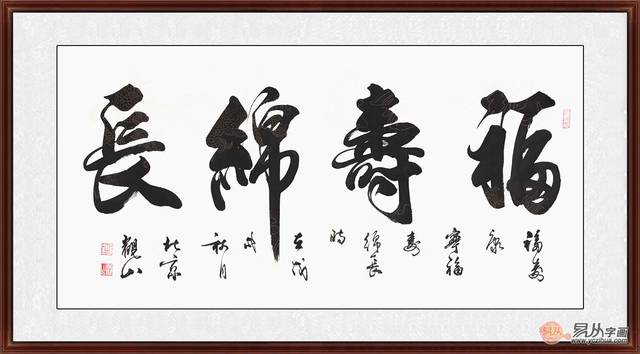 福壽綿長
福壽
康
寧福
壽
綿長
時
秋月
北京
觀山
易从字画
www.yczihua.com